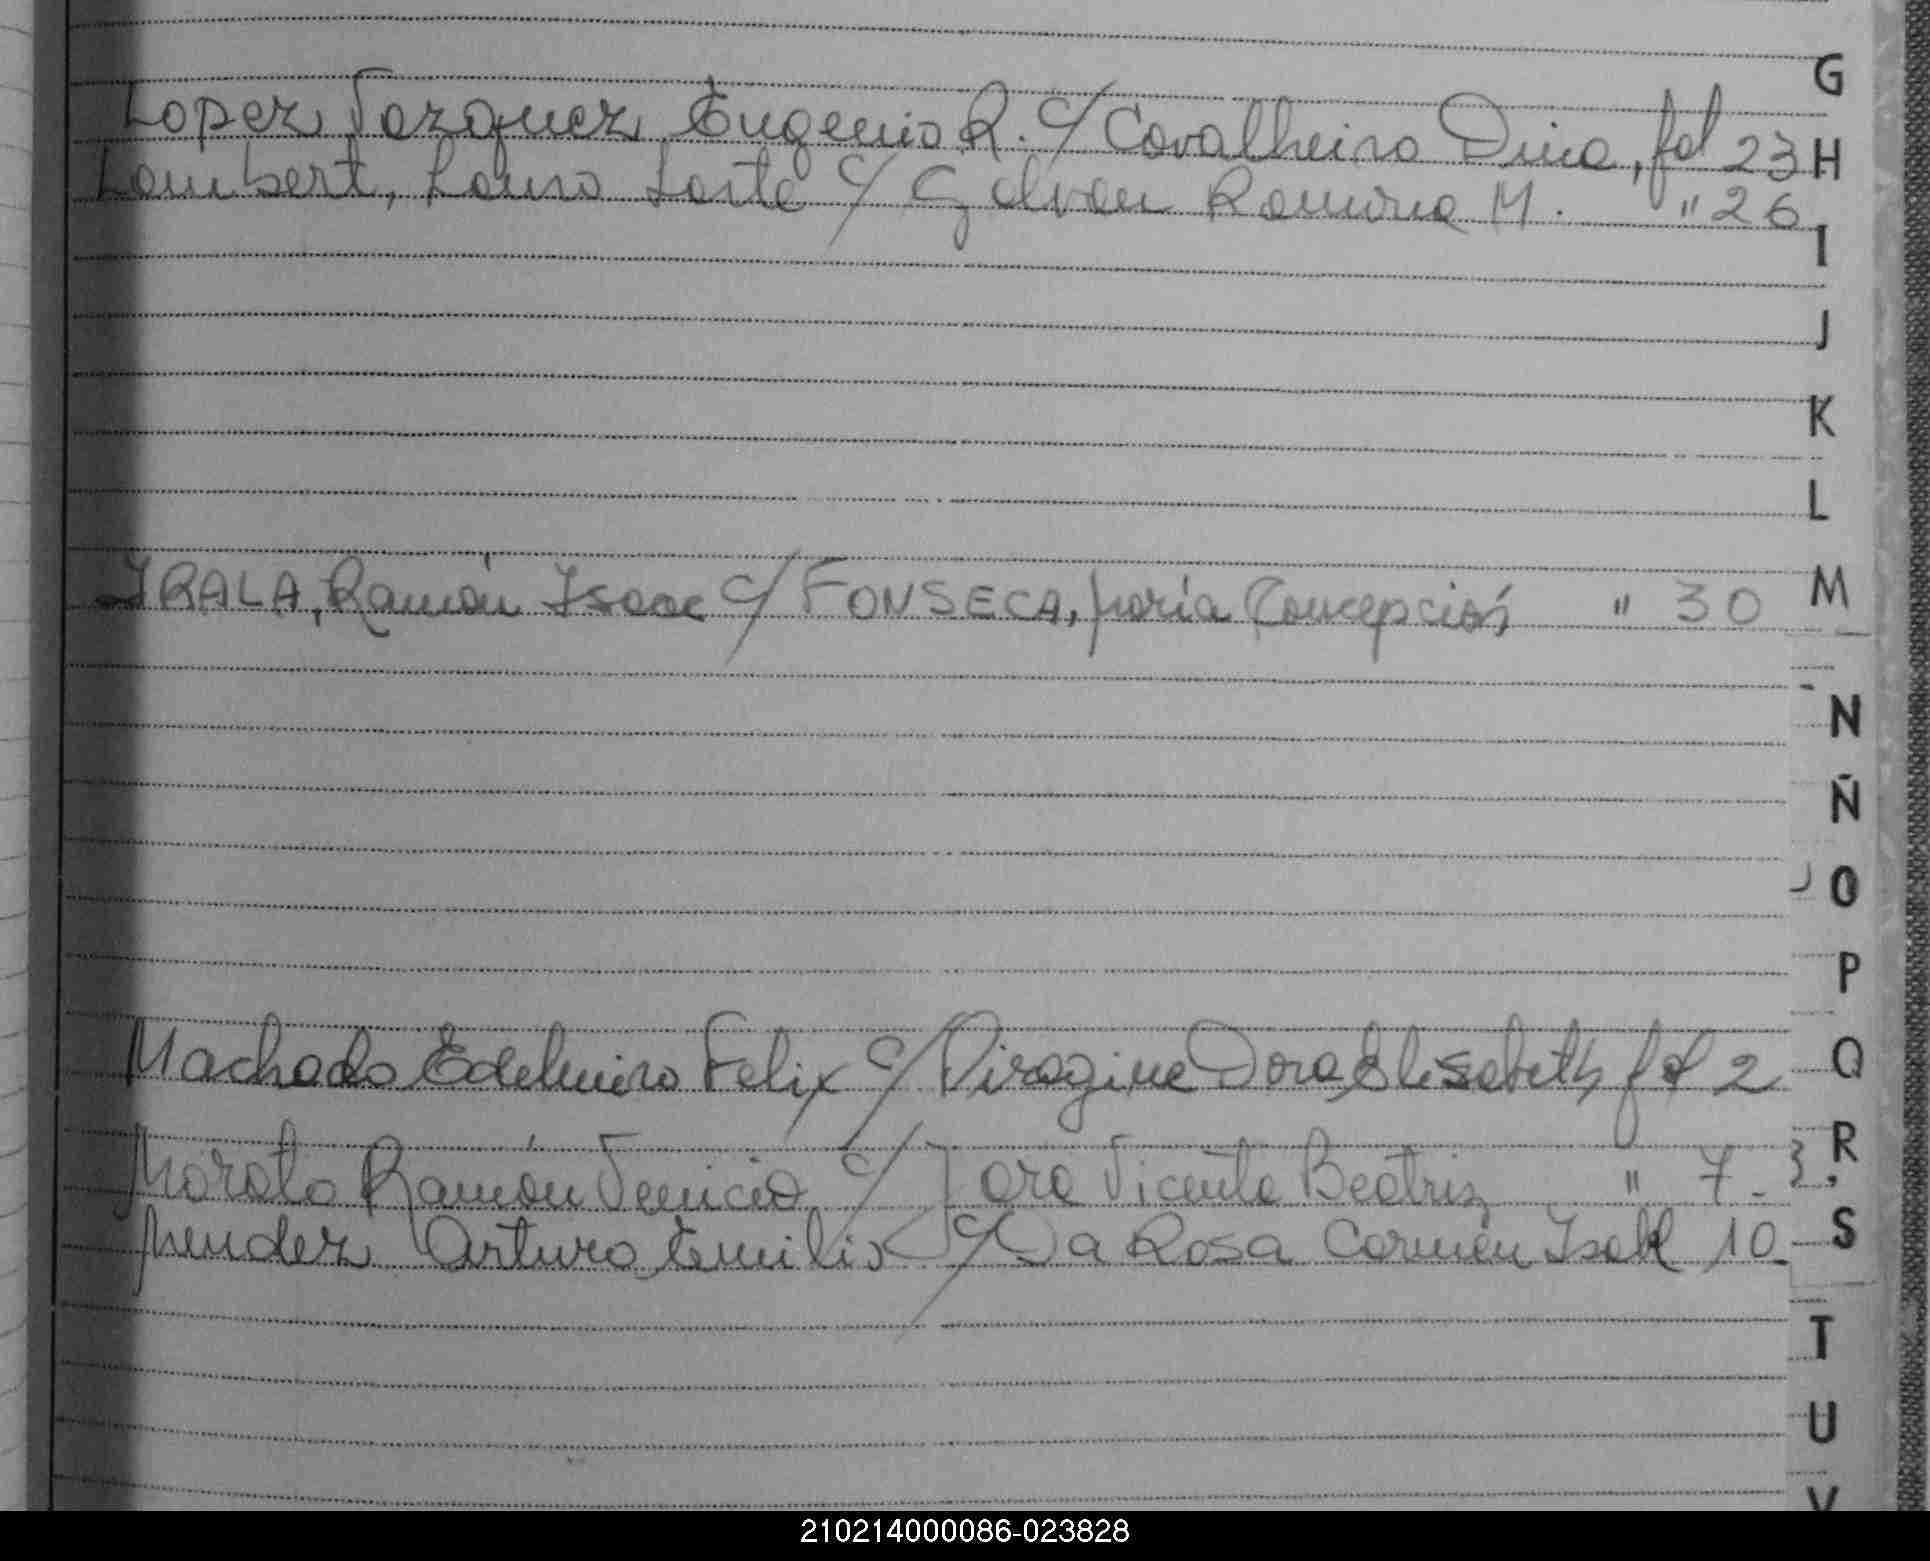 Lopez Vazquez Eugenio R. c/ Cavalheiro Dina, fol 23
Lambert, Lauro c/ Galvan Romina M. " 26
IRALA, Ramón Isaac c/ FONSECA, María Concepción " 30
Machado Edelmiro Felix c/ Viragine Dora Elisabeth fol 2
Morato Ramón Venicio c/ Jara Vicenta Beatriz " 7.
Mendez Arturo Emilio c/ Da Rosa Carmen Isabel 10
G
H
I
J
K
L
M
N
Ñ
O
P
Q
R
S
T
U
V
210214000086-023828